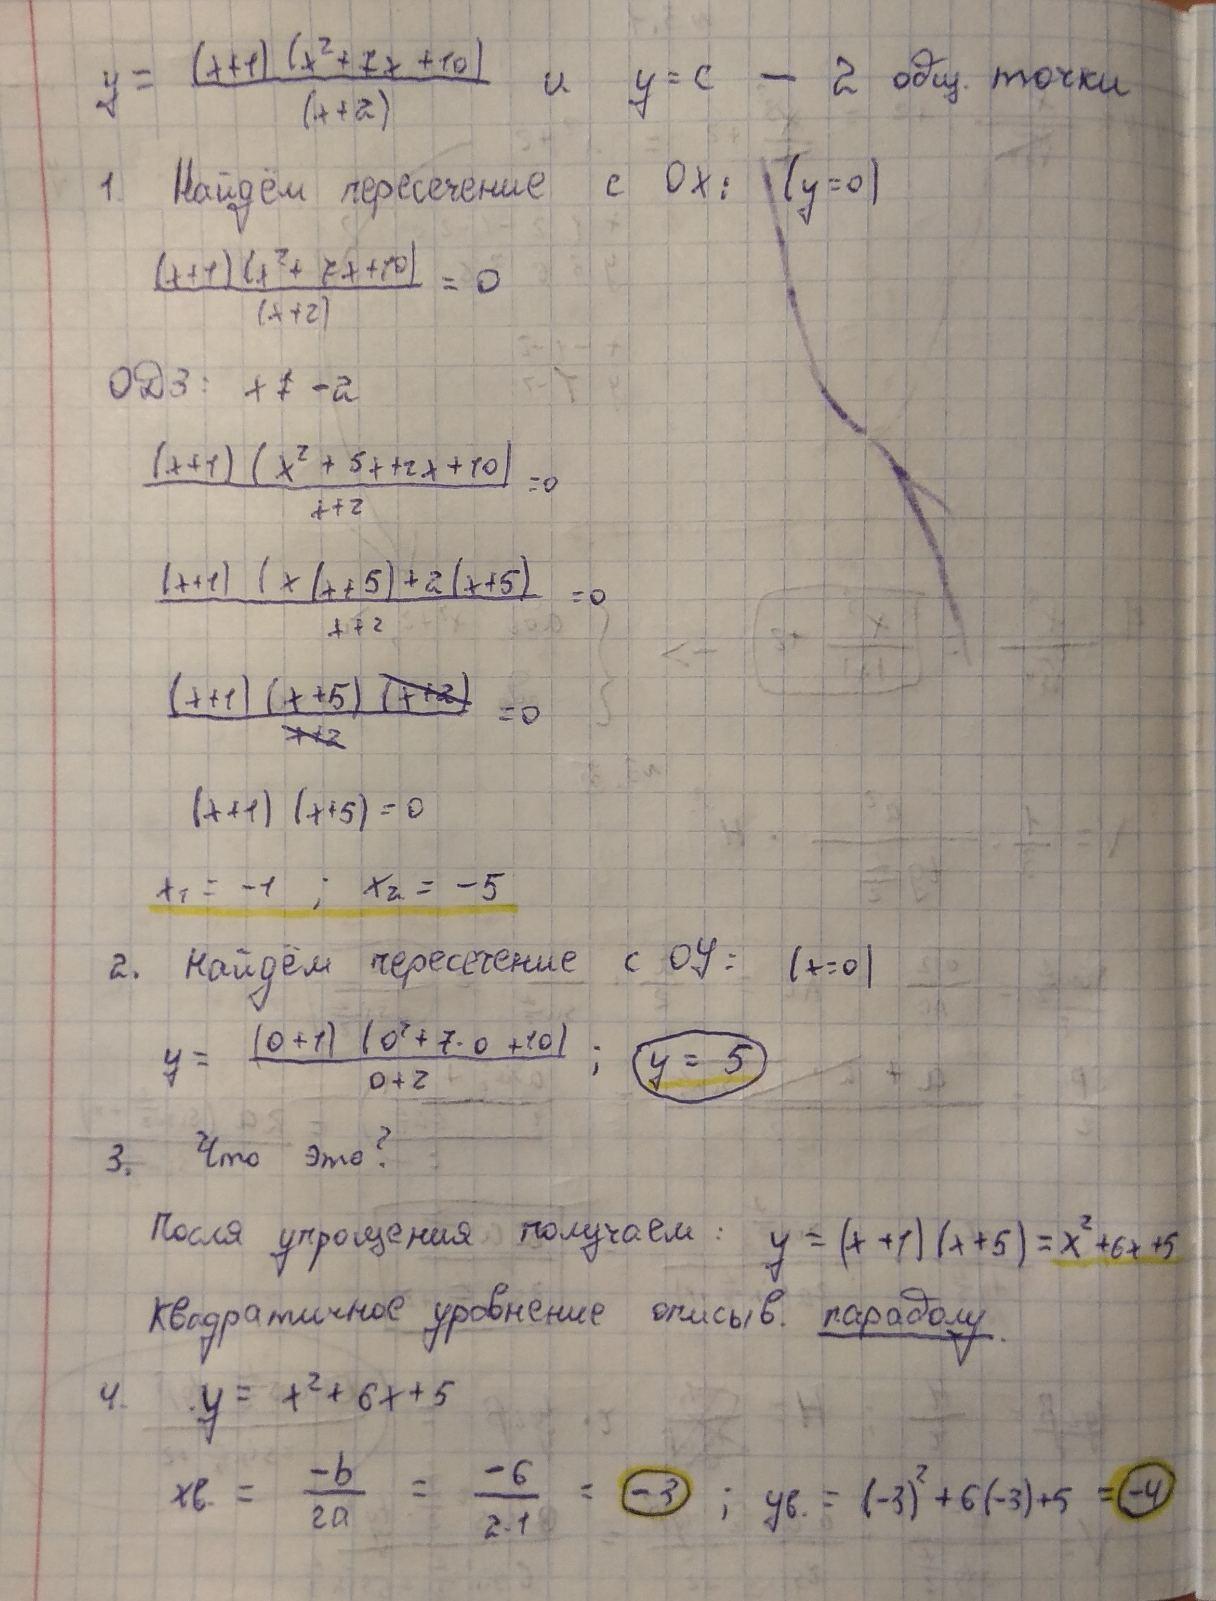 y = (x+1)(x²+7x+10) / (x+2) и y=c — 2 общ. точки
1. Найдём пересечение с OX: (y=0)
(x+1)(x²+7x+10) / (x+2) = 0
ОДЗ: x ≠ -2
(x+1)(x²+5x+2x+10) / x+2 =0
(x+1) (x(x+5)+2(x+5) / x+2 =0
(x+1)(x+5)(x+2) / x+2 =0
(x+1)(x+5)=0
x₁ = -1 ; x₂ = -5
2. Найдём пересечение с OY: (x=0)
y = (0+1)(0²+7·0+10) / 0+2 ; y = 5
3. Что это?
После упрощения получаем: y = (x+1)(x+5) = x²+6x+5
Квадратичное уровнение описыв. параболу.
4. y = x²+6x+5
xв. = -b / 2a = -6 / 2·1 = -3 ; yв. = (-3)²+6(-3)+5 = -4